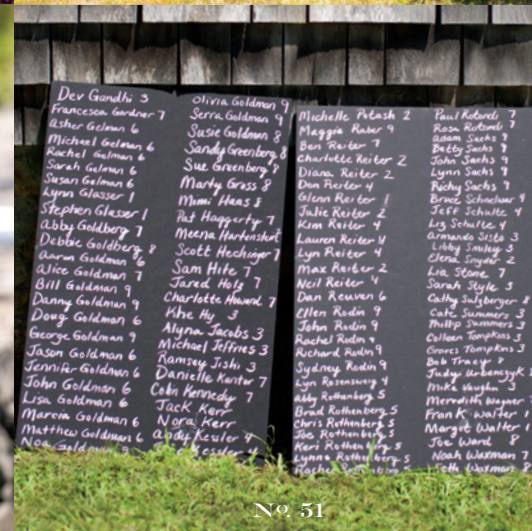 Dev Gandhi 3
Francesca Gardner 7
Asher Gelman 6
Michael Gelman 6
Rachel Gelman 6
Sarah Gelman 6
Susan Gelman 6
Lynn Glasser 1
Stephen Glasser 1
Abby Goldberg 7
Debbie Goldberg 8
Aaron Goldman 6
Alice Goldman 7
Bill Goldman 9
Danny Goldman 9
Doug Goldman 6
George Goldman 9
Jason Goldman 6
Jennifer Goldman 6
John Goldman 6
Lisa Goldman 6
Marcia Goldman 6
Matthew Goldman 6
Noa Goldman
Olivia Goldman 9
Serra Goldman 9
Susie Goldman 8
Sandy Greenberg 8
Sue Greenberg 8
Marty Gross 8
Mimi Haas 8
Pat Haggarty 7
Meena Hartenstein
Scott Hechinger 7
Sam Hite 7
Jared Holz 7
Charlotte Howard 7
Khe Hy 3
Alyna Jacobs 3
Michael Jeffries 3
Ramsey Jishi 3
Danielle Kantor 7
Colin Kennedy 7
Jack Kerr
Nora Kerr
Andy Kessler 4
Kessler 4
Michelle Potash 2
Maggie Raber 9
Ben Reiter 7
Charlotte Reiter 2
Diana Reiter 2
Don Reiter 4
Glenn Reiter 1
Julie Reiter 2
Kim Reiter 4
Lauren Reiter 4
Lyn Reiter 4
Max Reiter 2
Neil Reiter 4
Dan Reuven 6
Ellen Rodin 9
John Rodin 9
Rachel Rodin 9
Richard Rodin 9
Sydney Rodin 9
Lyn Rosensweig 4
Abby Rothenberg 5
Brad Rothenberg 5
Chris Rothenberg 5
Joe Rothenberg 5
Keri Rothenberg 5
Lynn Rothenberg 5
Rachel Rothenberg 5
Paul Rotondi 7
Rosa Rotondi 7
Adam Sachs 9
Betty Sachs 9
John Sachs 9
Lynn Sachs 9
Richy Sachs 9
Bruce Schnelwar 9
Jeff Schulte 4
Liz Schulte 4
Armando Sisto 3
Libby Smiley 3
Elena Snyder 2
Lia Stone 7
Sarah Style 3
Cathy Sulzberger
Cate Summers 3
Phillip Summers 3
Colleen Tompkins 3
Graves Tompkins 3
Bob Tracy 8
Judy Urbanczyk
Mike Vaughn 3
Meredith Wagner
Frank Walter 1
Margot Walter 1
Joe Ward 8
Noah Waxman 7
Seth Waxman 8
No. 51